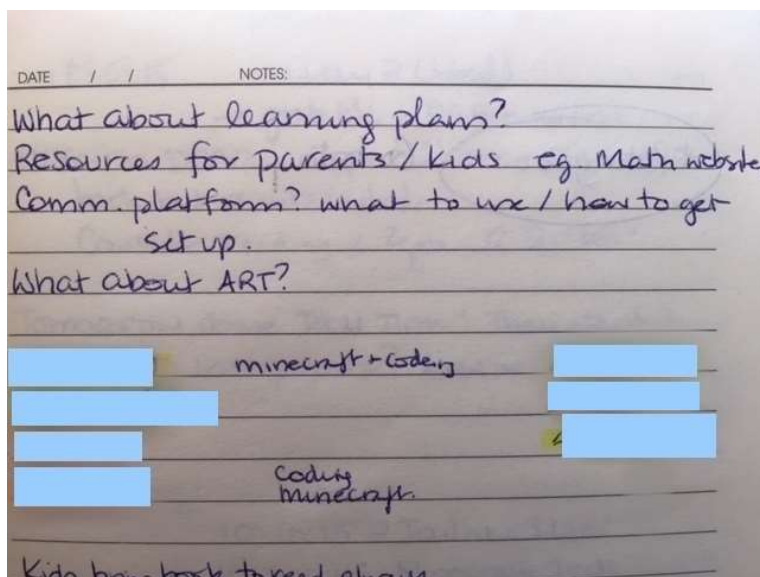 DATE / / NOTES:
What about learning plans?
Resources for parents / kids eg. Math website
Comm. platform? what to use / how to get
set up.
What about ART?
minecraft + coding
coding
minecraft.
Kids have book to read always